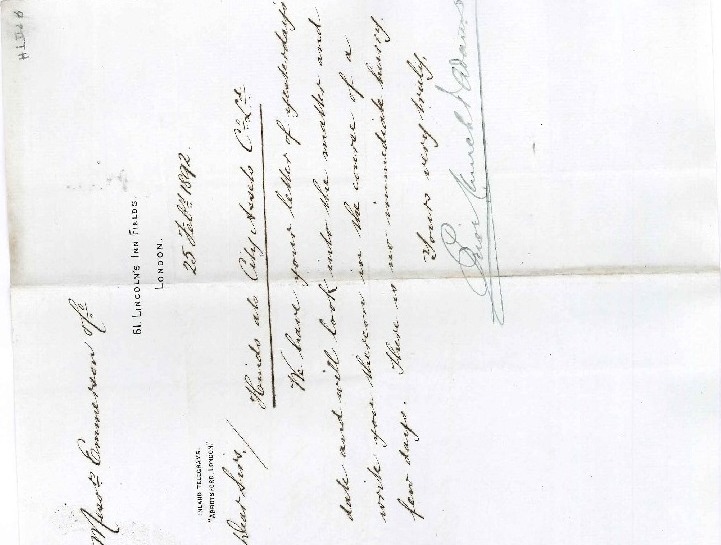 61. LINCOLN'S INN FIELDS.
LONDON.
25 Feby 1892
INLAND TELEGRAMS.
"ABBOTSFORD, LONDON."
Dear Sirs,
Hinds ats City Assets Co. Ld.
We have your letter of yesterday's
date and will look into the matter and
write you thereon in the course of a
few days. There is no immediate hurry.
Yours very truly,
& Adams
Messrs Emmerson & Co